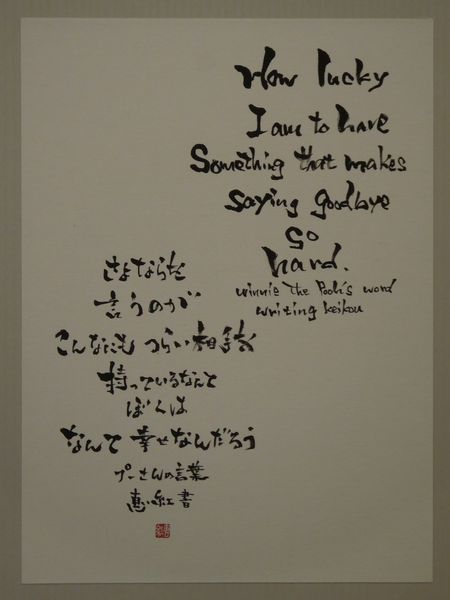 How lucky
I am to have
Something that makes
saying goodbye
so
hard.
winnie the Pooh's word
writing keikou
さよならを
言うのが
こんなにも つらい相手を
持っているなんて
ぼくは
なんて 幸せなんだろう
プーさんの言葉
恵紅書